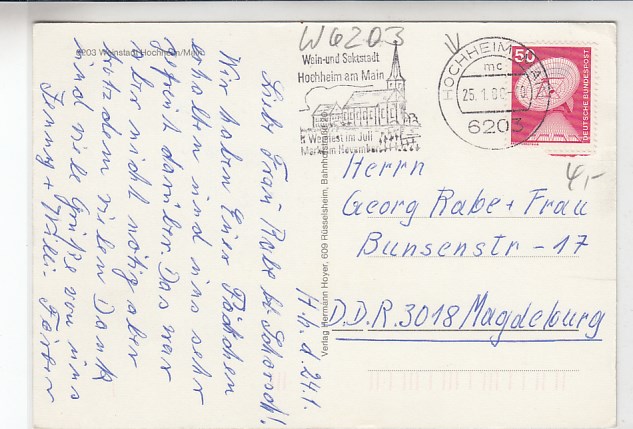 W6203
6203 Weinstadt Hochheim/Main
Wein-und Sektstadt
Hochheim am Main
Weinfest im Juli
Markt im November
HOCHHEIM
mc
25.1.80
6203
50
DEUTSCHE BUNDESPOST
4,-
H.h. d. 24.1.
Liebe Frau Rabe + Schorsch!
Wir haben Euer Päckchen
erhalten und uns sehr
gefreut darüber. Das war
aber nicht nötig aber
trotzdem vielen Dank
und viele Grüße von uns
Jenny + Willi
Verlag Hermann Hoyer, 609 Rüsselsheim, Bahnhofstraße
Herrn
Georg Rabe + Frau
Bunsenstr - 17
D.D.R. 3018 Magdeburg